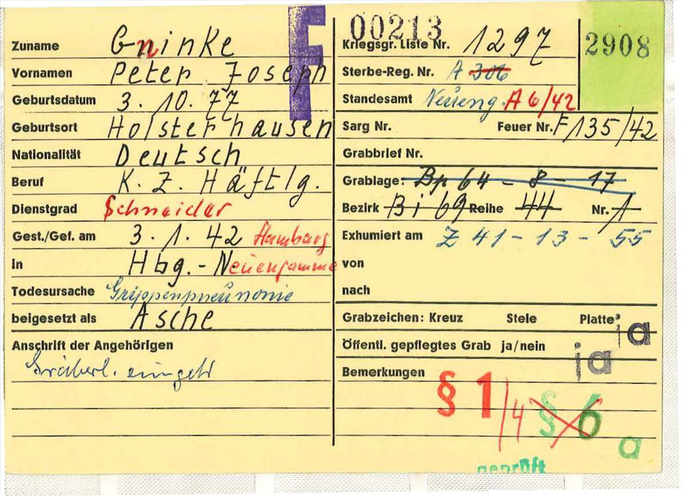 F
00213
2908
Zuname Gninke
Vornamen Peter Joseph
Geburtsdatum 3. 10. 77
Geburtsort Holsterhausen
Nationalität Deutsch
Beruf K. Z. Häftlg.
Dienstgrad Schneider
Gest./Gef. am 3. 1. 42 Hamburg
in Hbg. - Neuengamme
Todesursache Grippenpneunonie
beigesetzt als Asche
Anschrift der Angehörigen
Gräberl.
Kriegsgr. Liste Nr. 1297
Sterbe-Reg. Nr. A 306
Standesamt Neueng. A 6/42
Sarg Nr. Feuer Nr. F 135/42
Grabbrief Nr.
Grablage: Bp 64 - 8 - 17
Bezirk Bi 69 Reihe 44 Nr. 1
Exhumiert am Z 41 - 13 - 55
von
nach
Grabzeichen: Kreuz Stele Platte ja
Öffentl. gepflegtes Grab ja/nein ja
Bemerkungen
§ 1/4 § 6 a
geprüft